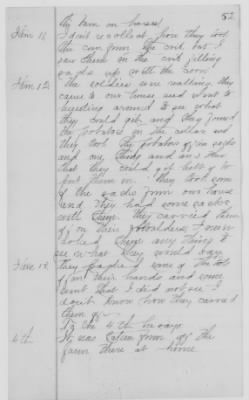 52
my barn on horses
Item 11 I dont recollect how they took
the corn from the crib but I
saw them in the crib filling
sacks up with the corn
Item 12 The soldiers were walking they
came to our house and went to
hunting around to see what
they could get and they found
the potatoes in the cellar and
they took the potatoes up in sacks
and one thing and another
that they could get hold of to
put them in. They took some
of the sacks from our house
and they had some sacks
with them. They carried them
off on their shoulders I
them any thing to
see what they would say
Item 13 They some of the
off in their hands and some
went that I did not see I
dont know how they carried
them off
To the 4th he says
4th It was taken from off the
farm there at home